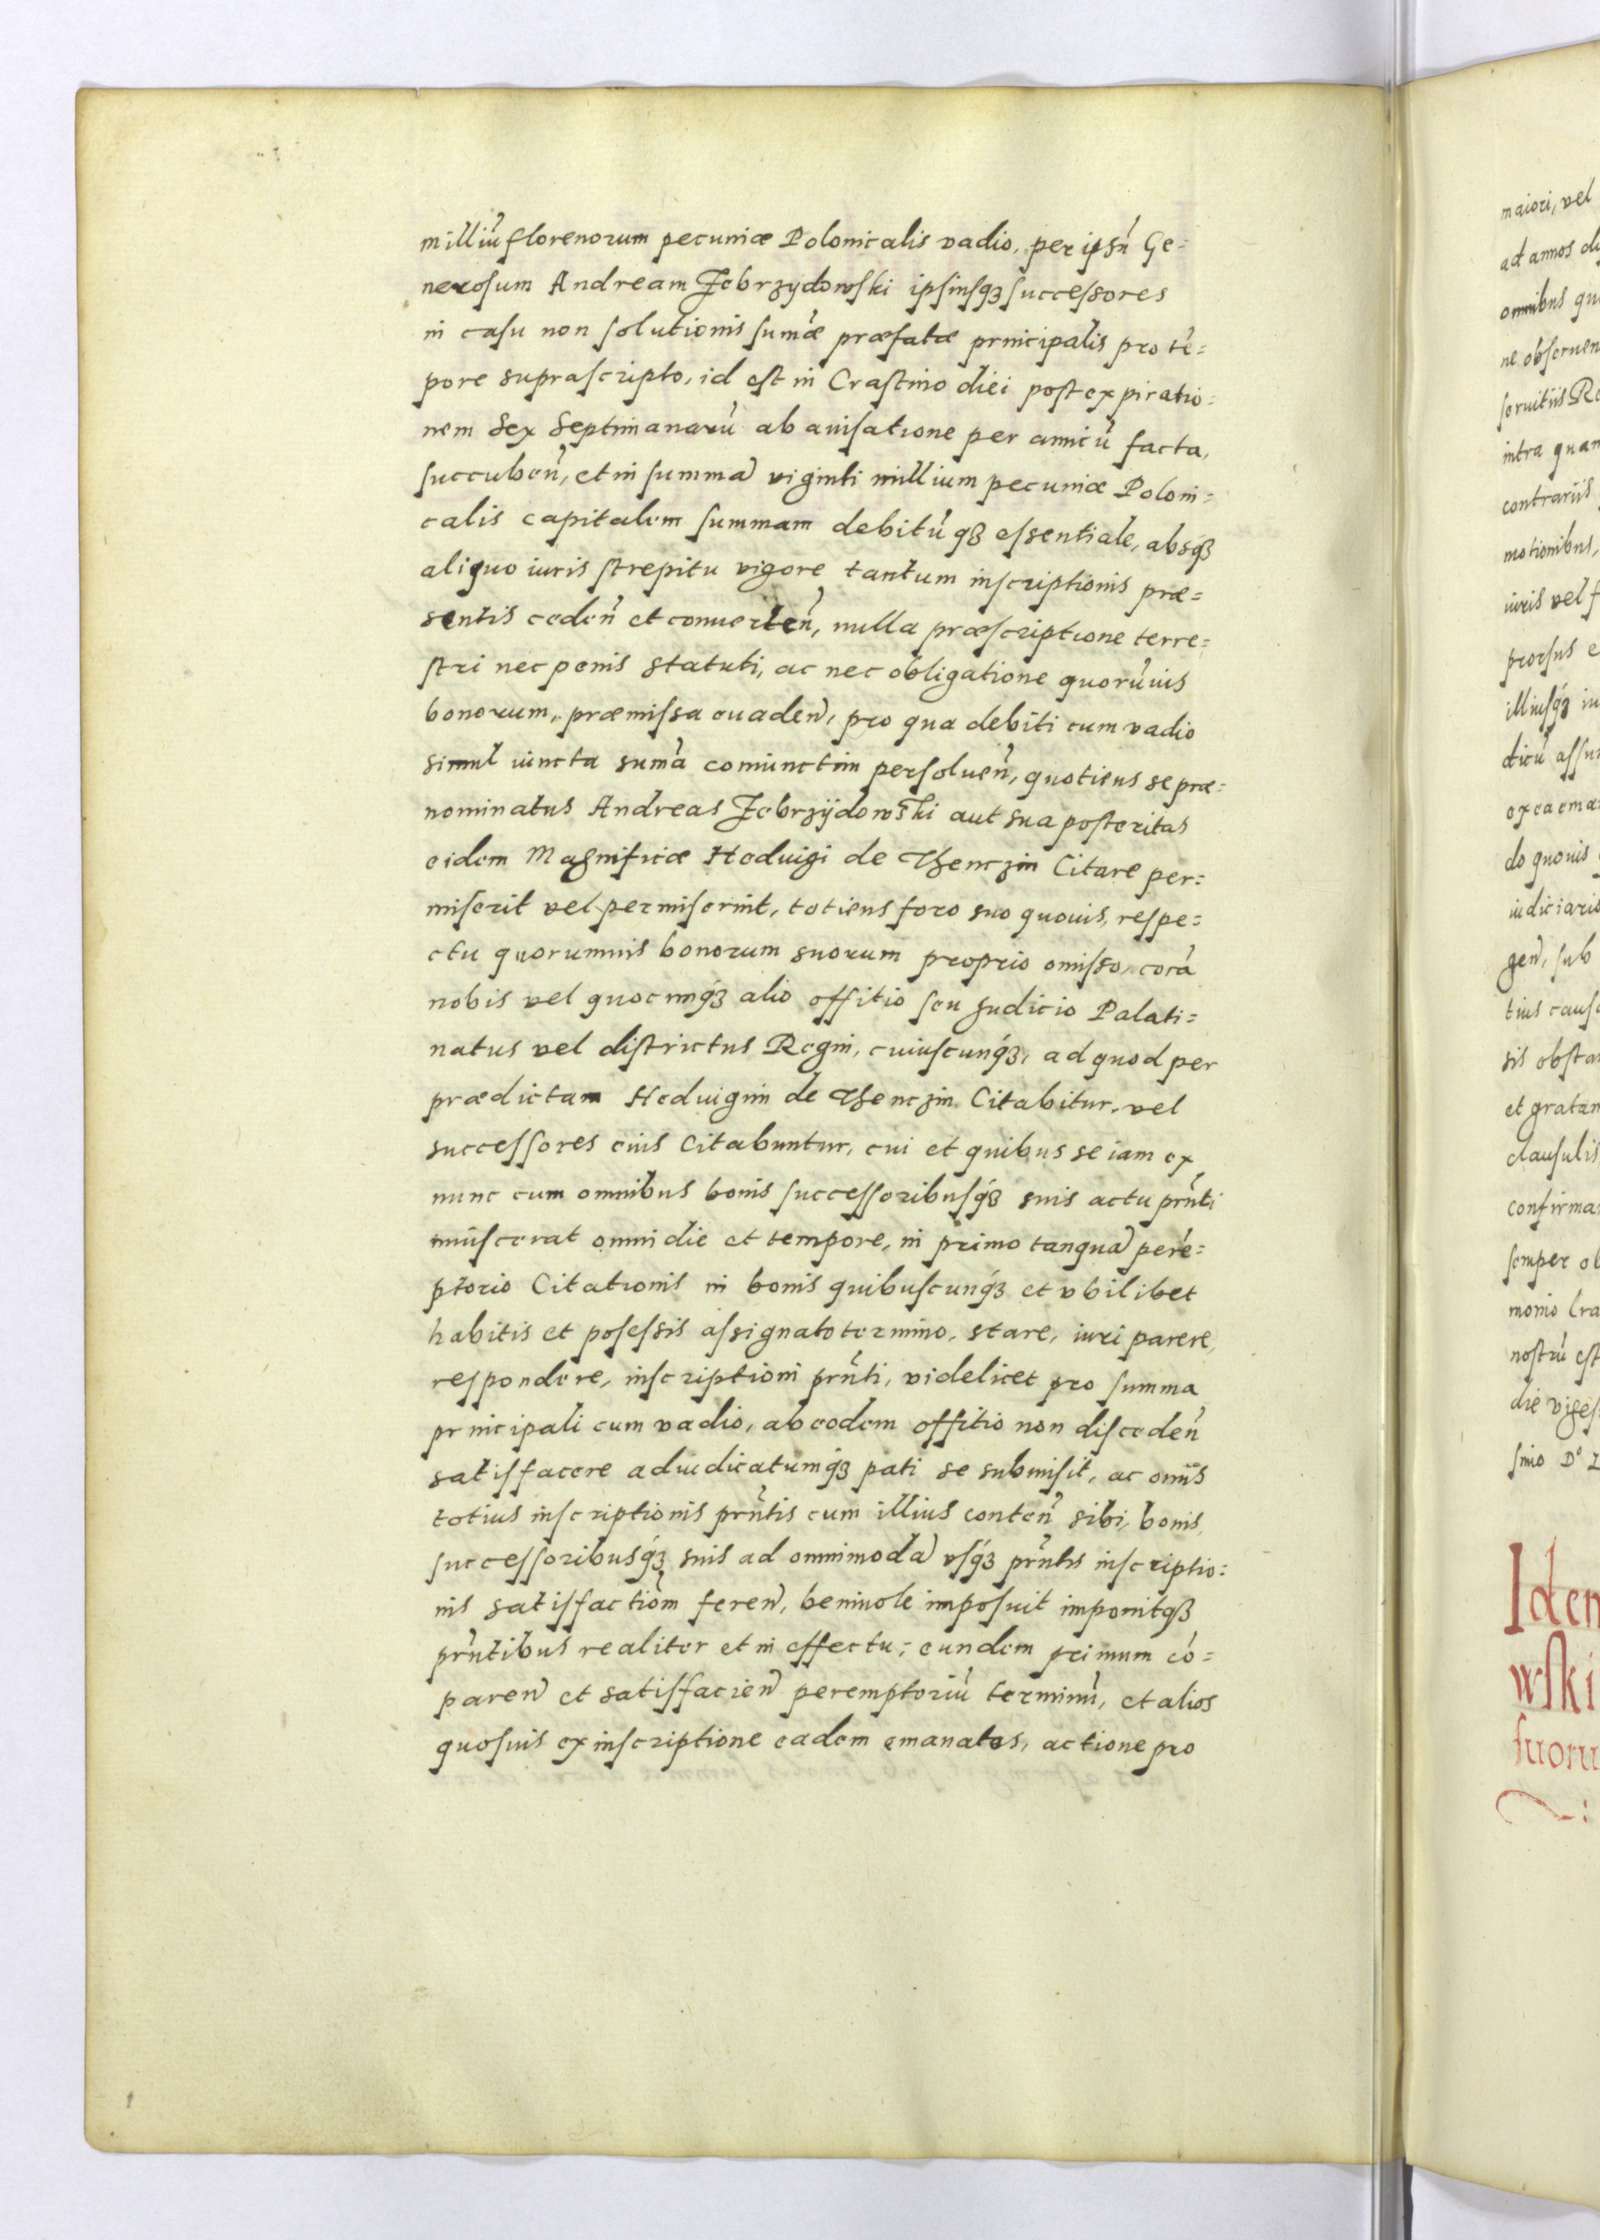 milliū florenorum pecuniæ Polonicalis vadio, per ipsū Ge=
nerosum Andream Zebrzydowski ipsiusq̢ successores
in casu non solutionis sumæ præfatæ principalis pro tē=
pore suprascripto, id est in Crastino diei post expiratio=
nem Sex Septimanarū ab auisatione per amicū facta,
succuben̄, et in summa viginti millium pecuniæ Poloni=
calis capitalem summam debitū q̢ essentiale, absq̢
aliquo iuris strepitu vigore tantum inscriptionis præ=
sentis ceden̄ et conuerten̄, nulla præscriptione terre=
stri nec penis statuti, ac nec obligatione quorūuis
bonorum, præmissa euaden̄, pro qua debiti cum vadio
simul iuncta sumā coniunctim persoluen̄, quotiens se præ=
nominatus Andreas Zebrzÿdowski aut sua posteritas
eidem Magnificæ Heduigi de Thenczin Citare per=
miserit vel permiserint, totiens foro suo quouis, respe=
ctu quorumuis bonorum suorum proprio omisso, corā
nobis vel quocunq̢ alio offitio seu Judicio Palati=
natus vel districtus Regni, cuiuscunq̢, ad quod per
prædictam Heduigim de Thenczin Citabitur, vel
successores eius Citabuntur, cui et quibus se iam ex
nunc cum omnibus bonis successoribusq̢ suis actu prn̄ti
inuiscerat omni die et tempore, in primo tanqua perē=
ptorio Citationis in bonis quibuscunq̢ et vbilibet
habitis et posessis assignato termino, stare, iuri parere,
respondere, inscriptioni prn̄ti, videlicet pro summa
principali cum vadio, ab eodem offitio non disceden̄
satisfacere adiudicatumq̢ pati se submisit, ac onus
totius inscriptionis prn̄tis cum illius conten̄ sibi, bonis,
successoribusq̢ suis ad omnimoda vsq̢ prn̄tis inscriptio=
nis satisfactiōm feren̄, beniuole imposuit imponitq̢
prn̄tibus realiter et in effectu; eundem primum cō=
paren̄ et satisfacien̄ peremptoriū terminū, et alios
quosuis ex inscriptione eadem emanatos, actione pro
maiori, vel
ad annos
omnibus
ne obseruen
seruitiis
intra quam
contrariis
motionibus,
iuris vel
prorsus
illiusq̢
dicū
ex ea
do quouis
iudiciario
gen̄, sub
tius caus
sis obsta
et gratam
clausulis
confirma
semper
monio
nostrū est
die viges
simo Dº
Iden
wski
suoru